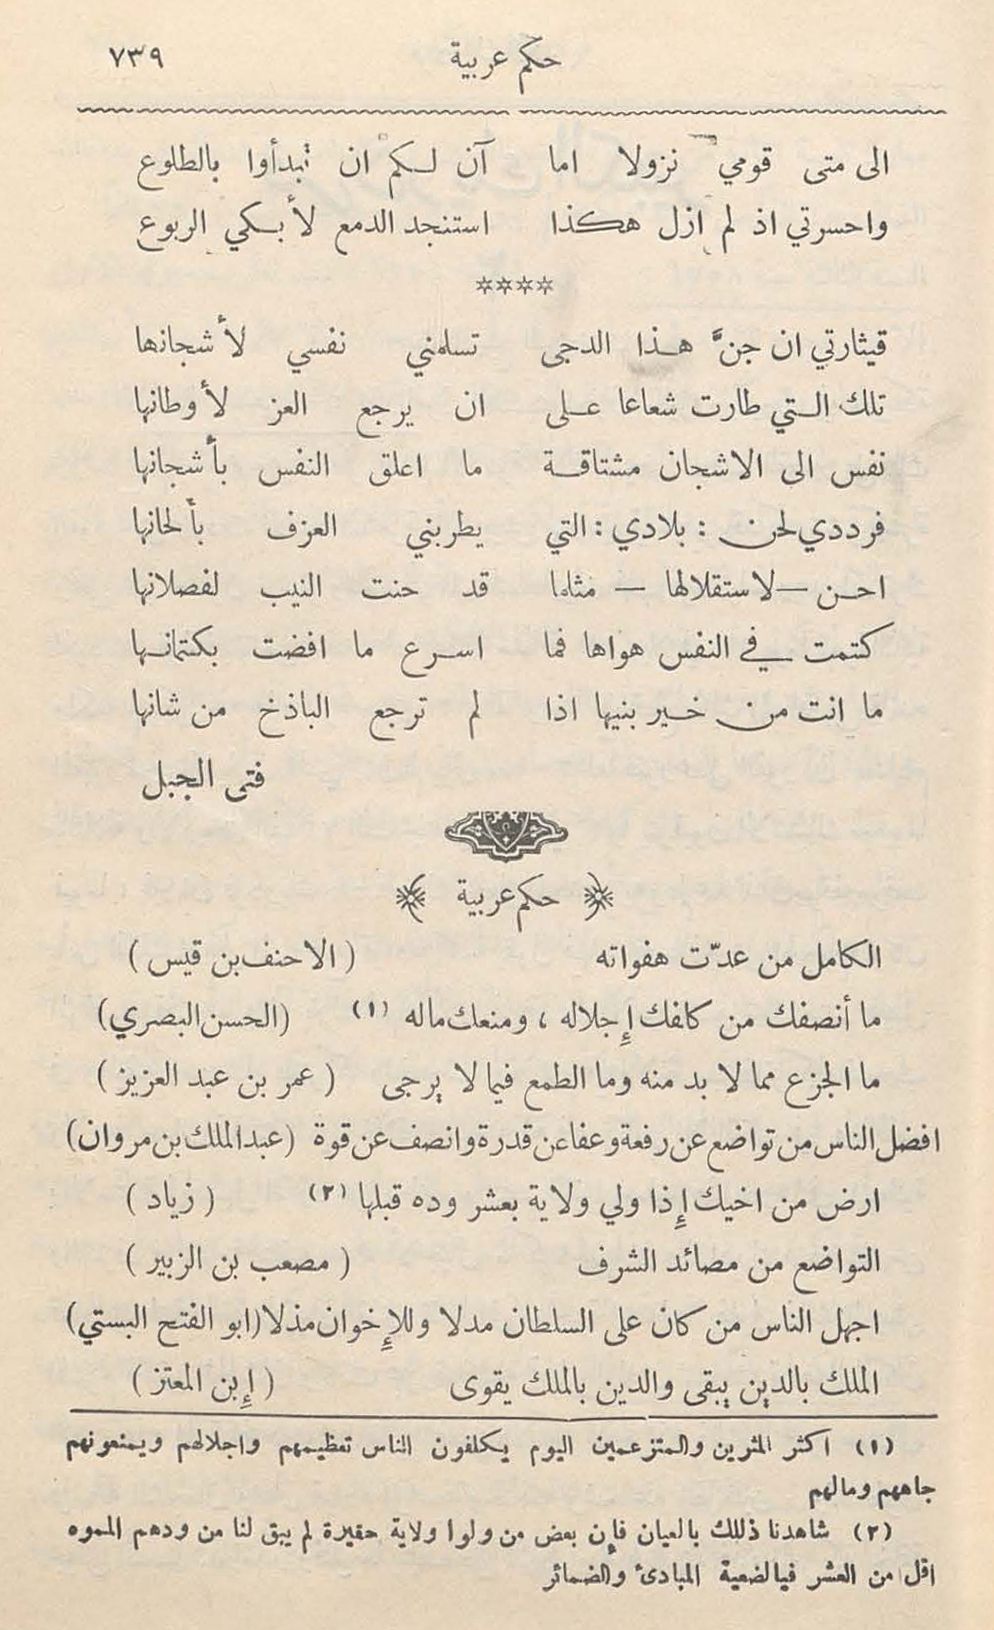 حكم عربية ٧٣٩
الى متى قومي نزولا اما آن لكم ان تبدأوا بالطلوع
واحسرتي اذ لم ازل هكذا استنجد الدمع لأبكي الربوع
****
قيثارتي ان جنَّ هذا الدجى تسلمني نفسي لأشجانها
تلك التي طارت شعاعا على ان يرجع العز لأوطانها
نفس الى الاشجان مشتاقة ما اعلق النفس بأشجانها
فرددي لحن : بلادي : التي يطربني العزف بألحانها
احن — لاستقلالها — مثلما قد حنت النيب لفصلانها
كتمت في النفس هواها فما اسرع ما افضت بكتمانها
ما انت من خير بنيها اذا لم ترجع الباذخ من شانها
فتى الجبل
حكم عربية
الكامل من عدّت هفواته ( الاحنف بن قيس )
ما أنصفك من كلفك إجلاله ، ومنعك ماله (١) (الحسن البصري)
ما الجزع مما لا بد منه وما الطمع فيما لا يرجى ( عمر بن عبد العزيز )
افضل الناس من تواضع عن رفعة وعفا عن قدرة وانصف عن قوة (عبد الملك بن مروان)
ارض من اخيك إذا ولي ولاية بعشر وده قبلها (٢) ( زياد )
التواضع من مصائد الشرف ( مصعب بن الزبير )
اجهل الناس من كان على السلطان مدلا وللإخوان مذلا (ابو الفتح البستي)
الملك بالدين يبقى والدين بالملك يقوى ( إبن المعتز )
(١) اكثر المثرين والمتزعمين اليوم يكلفون الناس تعظيمهم واجلالهم ويمنعونهم
جاههم ومالهم
(٢) شاهدنا ذلك بالعيان فإن بعض من ولوا ولاية حقيرة لم يبق لنا من ودهم المموه
اقل من العشر فيالضعية المبادئ والضمائر